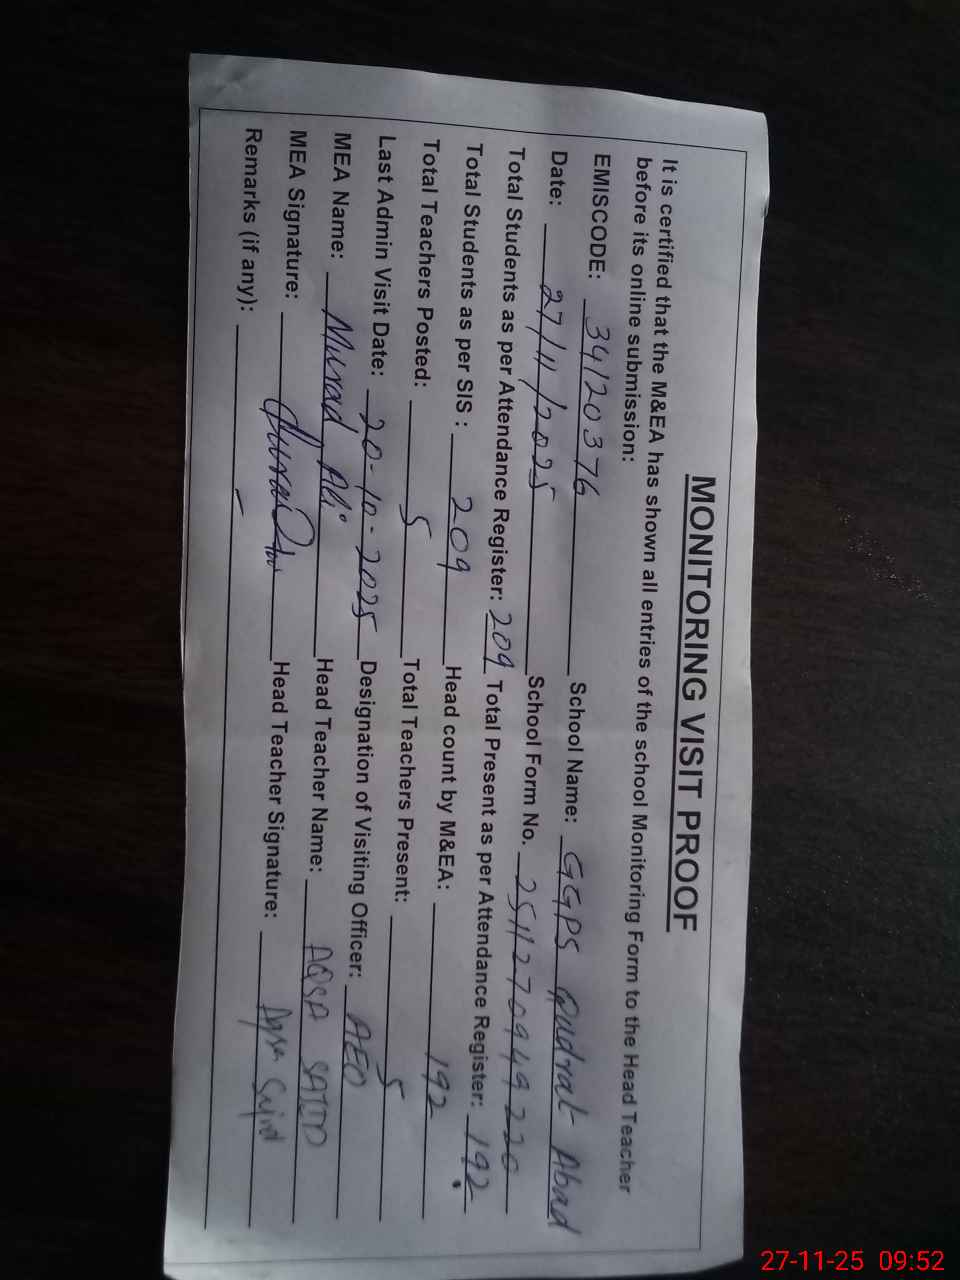 MONITORING VISIT PROOF
It is certified that the M&EA has shown all entries of the school Monitoring Form to the Head Teacher
before its online submission:
EMISCODE: 34120376 School Name: GGPS Qudrat Abad
Date: 27/11/2025 School Form No. 2511270949220
Total Students as per Attendance Register: 209 Total Present as per Attendance Register: 192
Total Students as per SIS : 209 Head count by M&EA: 192
Total Teachers Posted: 5 Total Teachers Present: 5
Last Admin Visit Date: 20-10-2025 Designation of Visiting Officer: AEO
MEA Name: Murad Ali Head Teacher Name: AQSA SAJJD
MEA Signature: Head Teacher Signature: Aqsa Sajid
Remarks (if any): —
27-11-25 09:52